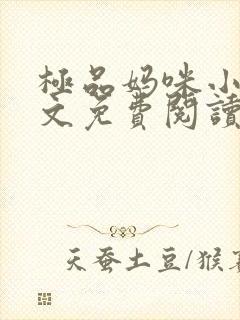 極品妈咪小
文免費閱讀
天蚕土豆/猴